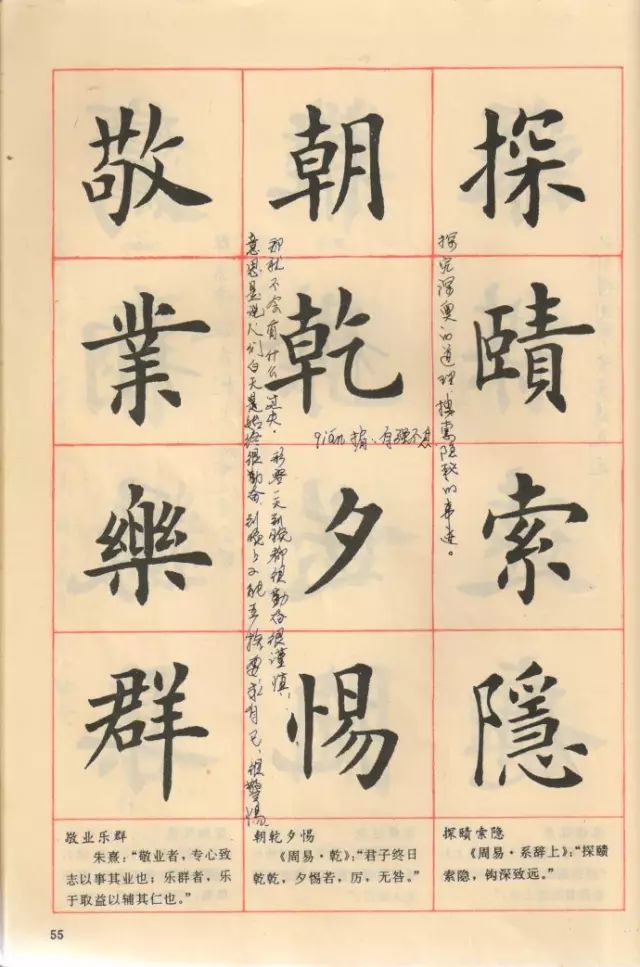 探賾索隱
朝乾夕惕
敬業樂群
探究深奥的道理 搜索隐秘的事迹。
那就不会有什么过失. 形容一天到晚都很勤奋很谨慎,
意思是说人们白天是始终很勤奋, 到晚上又能 要求自己, 很警惕
探赜索隐
《周易·系辞上》:“探赜
索隐，钩深致远。”
朝乾夕惕
《周易·乾》:“君子终日
乾乾，夕惕若，厉，无咎。”
敬业乐群
朱熹:“敬业者，专心致
志以事其业也；乐群者，乐
于取益以辅其仁也。”
55